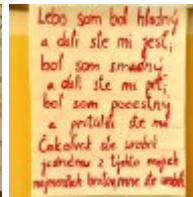 Lebo som bol hladný
a dali ste mi jesť;
bol som smädný
a dali ste mi piť;
bol som pocestný
a pritúlili ste ma
Čokoľvek ste urobili
jednému z týchto mojich
najmenších bratov, mne ste urobili